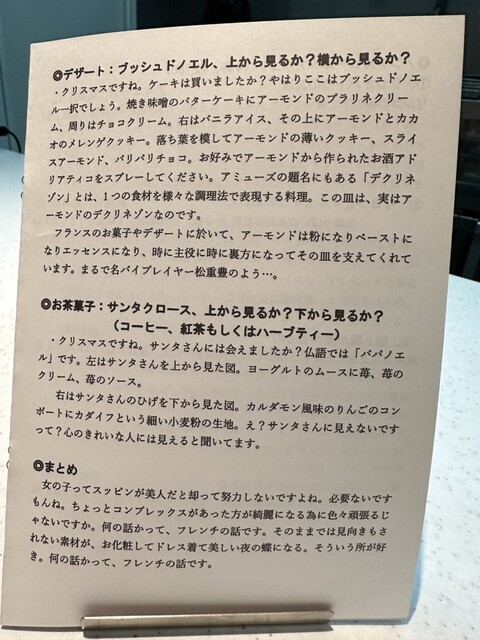 ◎デザート：ブッシュドノエル、上から見るか？横から見るか？
・クリスマスですね。ケーキは買いましたか？やはりここはブッシュドノエ
ル一択でしょう。焼き味噌のバターケーキにアーモンドのプラリネクリー
ム、周りはチョコクリーム。右はバニラアイス、その上にアーモンドとカカ
オのメレンゲクッキー。落ち葉を模してアーモンドの薄いクッキー、スライ
スアーモンド、パリパリチョコ。お好みでアーモンドから作られたお酒アド
リアティコをスプレーしてください。アミューズの題名にもある「デクリネ
ゾン」とは、1つの食材を様々な調理法で表現する料理。この皿は、実はア
ーモンドのデクリネゾンなのです。
フランスのお菓子やデザートに於いて、アーモンドは粉になりペーストに
なりエッセンスになり、時に主役に時に裏方になってその皿を支えてくれて
います。まるで名バイプレイヤー松重豊のよう…。
◎お茶菓子：サンタクロース、上から見るか？下から見るか？
（コーヒー、紅茶もしくはハーブティー）
・クリスマスですね。サンタさんには会えましたか？仏語では「パパノエ
ル」です。左はサンタさんを上から見た図。ヨーグルトのムースに苺、苺の
クリーム、苺のソース。
右はサンタさんのひげを下から見た図。カルダモン風味のりんごのコン
ポートにカダイフという細い小麦粉の生地。え？サンタさんに見えないです
って？心のきれいな人には見えると聞いてます。
◎まとめ
女の子ってスッピンが美人だと却って努力しないですよね。必要ないです
もんね。ちょっとコンプレックスがあった方が綺麗になる為に色々頑張るじ
ゃないですか。何の話かって、フレンチの話です。そのままでは見向きもさ
れない素材が、お化粧してドレス着て美しい夜の蝶になる。そういう所が好
き。何の話かって、フレンチの話です。